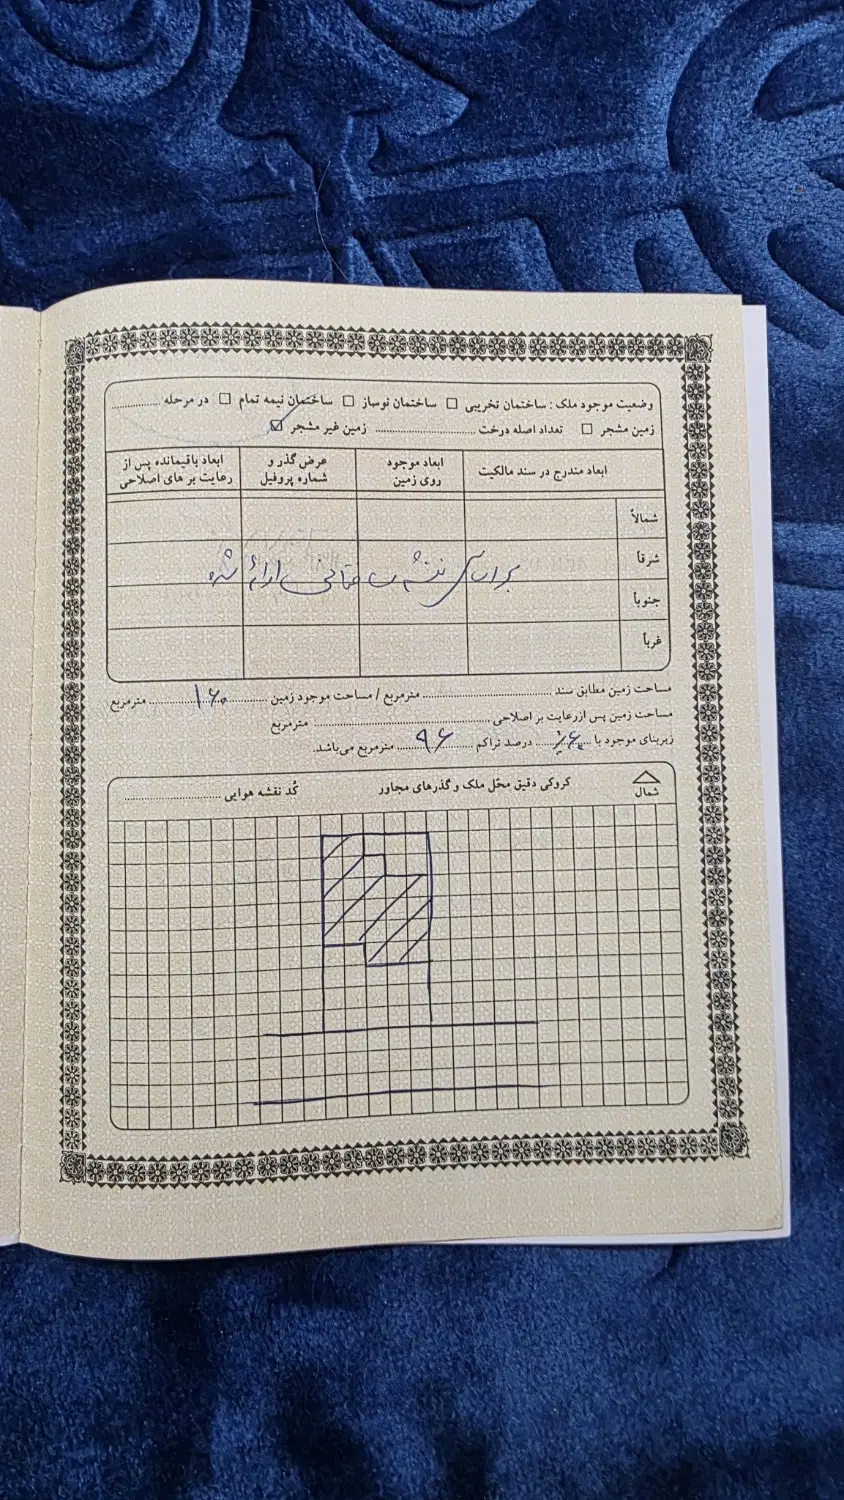 وضعیت موجود ملک : ساختمان تخریبی ☐ ساختمان نوساز ☐ ساختمان نیمه تمام ☐ در مرحله ..............
زمین مشجر ☐ تعداد اصله درخت .............................. زمین غیر مشجر ☑
ابعاد مندرج در سند مالکیت
ابعاد موجود روی زمین
عرض گذر و شماره پروفیل
ابعاد باقیمانده پس از رعایت بر های اصلاحی
شمالاً
شرقاً
بر اساس نقشه ساختمانی ارائه شده
جنوباً
غرباً
مساحت زمین مطابق سند .............................. مترمربع / مساحت موجود زمین ۱۶۰ مترمربع
مساحت زمین پس ازرعایت بر اصلاحی .............................. مترمربع
زیربنای موجود با ٪۶۰ درصد تراکم ۹۶ مترمربع می‌باشد.
شمال
کروکی دقیق محل ملک و گذرهای مجاور
کُد نقشه هوایی ..............................